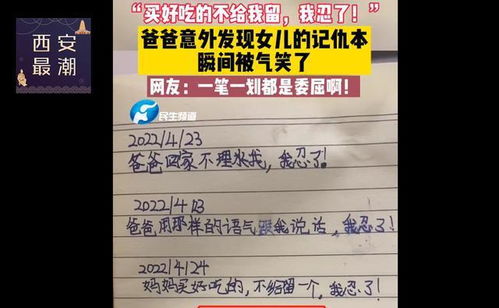 西安
最潮
“买好吃的不给我留，我忍了！”
爸爸意外发现女儿的记仇本
瞬间被气笑了
网友：一笔一划都是委屈啊！
民生频道
2022/4/23
爸爸回家不理我，我忍了！
2022/4
爸爸用那样的语气跟我说话，我忍了！
2022/4/24
妈妈买好吃的，不给留一个，我忍了！